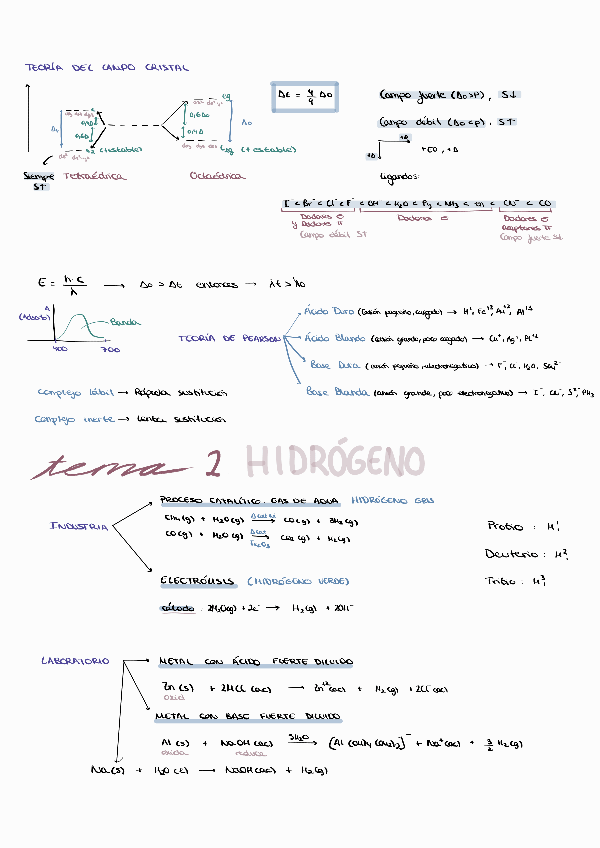 TEORÍA DEL CAMPO CRISTAL
Δt = 4/9 Δo
Campo fuerte (Δo>P), S↓
Campo débil (Δo<P), S↑
eg
0,6Δo
Δo
0,4Δ
t2g (+ estable)
Δt
0,4Δ
0,6Δ
(+estable)
Siempre S↑
Tetraédrica
Octaédrica
Ligandos:
I⁻ < Br⁻ < Cl⁻ < F⁻ < OH < H₂O < Py < NH₃ < en < CN⁻ < CO
Dadores σ y Dadores π
Campo débil S↑
Dadores σ
Dadores σ
Aceptores π
Campo fuerte S↓
E = h·c/λ → Δo > Δt entonces → λt > λo
A (Adsorb)
Banda
400 700
TEORÍA DE PEARSON
Ácido Duro (Catión pequeño, cargado) → H⁺, Fe⁺³,
Ácido Blando (Catión grande, poco cargado) → Cu⁺, Ag⁺,
Base Dura (anión pequeño, electronegativo) → F⁻, Cl, H₂O, SO₄²⁻
Base Blanda (anión grande, poco electronegativo) → I⁻, CN⁻, S²⁻, PH₃
Complejo lábil → Rápida sustitución
Complejo inerte → Lenta sustitución
tema 2 HIDRÓGENO
PROCESO CATALÍTICO. GAS DE AGUA HIDRÓGENO GRIS
INDUSTRIA
CH₄(g) + H₂O(g) → CO(g) + 3H₂(g)
CO(g) + H₂O(g) → CO₂(g) + H₂(g)
Protio : H¹₁
Deuterio : H²₁
Tritio : H³₁
ELECTRÓLISIS (HIDRÓGENO VERDE)
cátodo : 2H₂O(g) + 2e⁻ → H₂(g) + 2OH⁻
LABORATORIO
METAL CON ÁCIDO FUERTE DILUIDO
Zn(s) + 2HCl(ac) → Zn⁺²(ac) + H₂(g) + 2Cl⁻(ac)
oxid
METAL CON BASE FUERTE DILUIDO
Al(s) + NaOH(ac) →3H₂O [Al(OH)₄(OH₂)₂]⁻ + Na⁺(ac) + 3/2 H₂(g)
oxida reduce
Na(s) + H₂O(l) → NaOH(ac) + H₂(g)